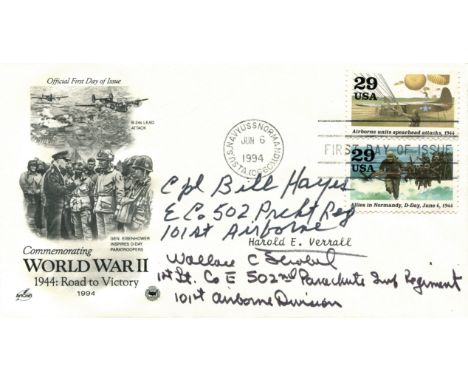 Official First Day of Issue
B-24s LEAD
ATTACK
GEN. EISENHOWER
INSPIRES D-DAY
PARATROOPERS
Commemorating
WORLD WAR II
1944: Road to Victory
1994
ArtCraft
U.S. NAVY USS NORMANDY
JUN 6
1994
29
USA
Airborne units spearhead attacks, 1944
FIRST DAY OF ISSUE
29
USA
Allies in Normandy, D-Day, June 6, 1944
Cpl Bill Hayes
E Co 502 Prcht Reg
101st Airborne
Harold E. Verrall
Wallace C Strobel
1st Lt. Co E 502nd Parachute Inf Regiment
101st Airborne Division